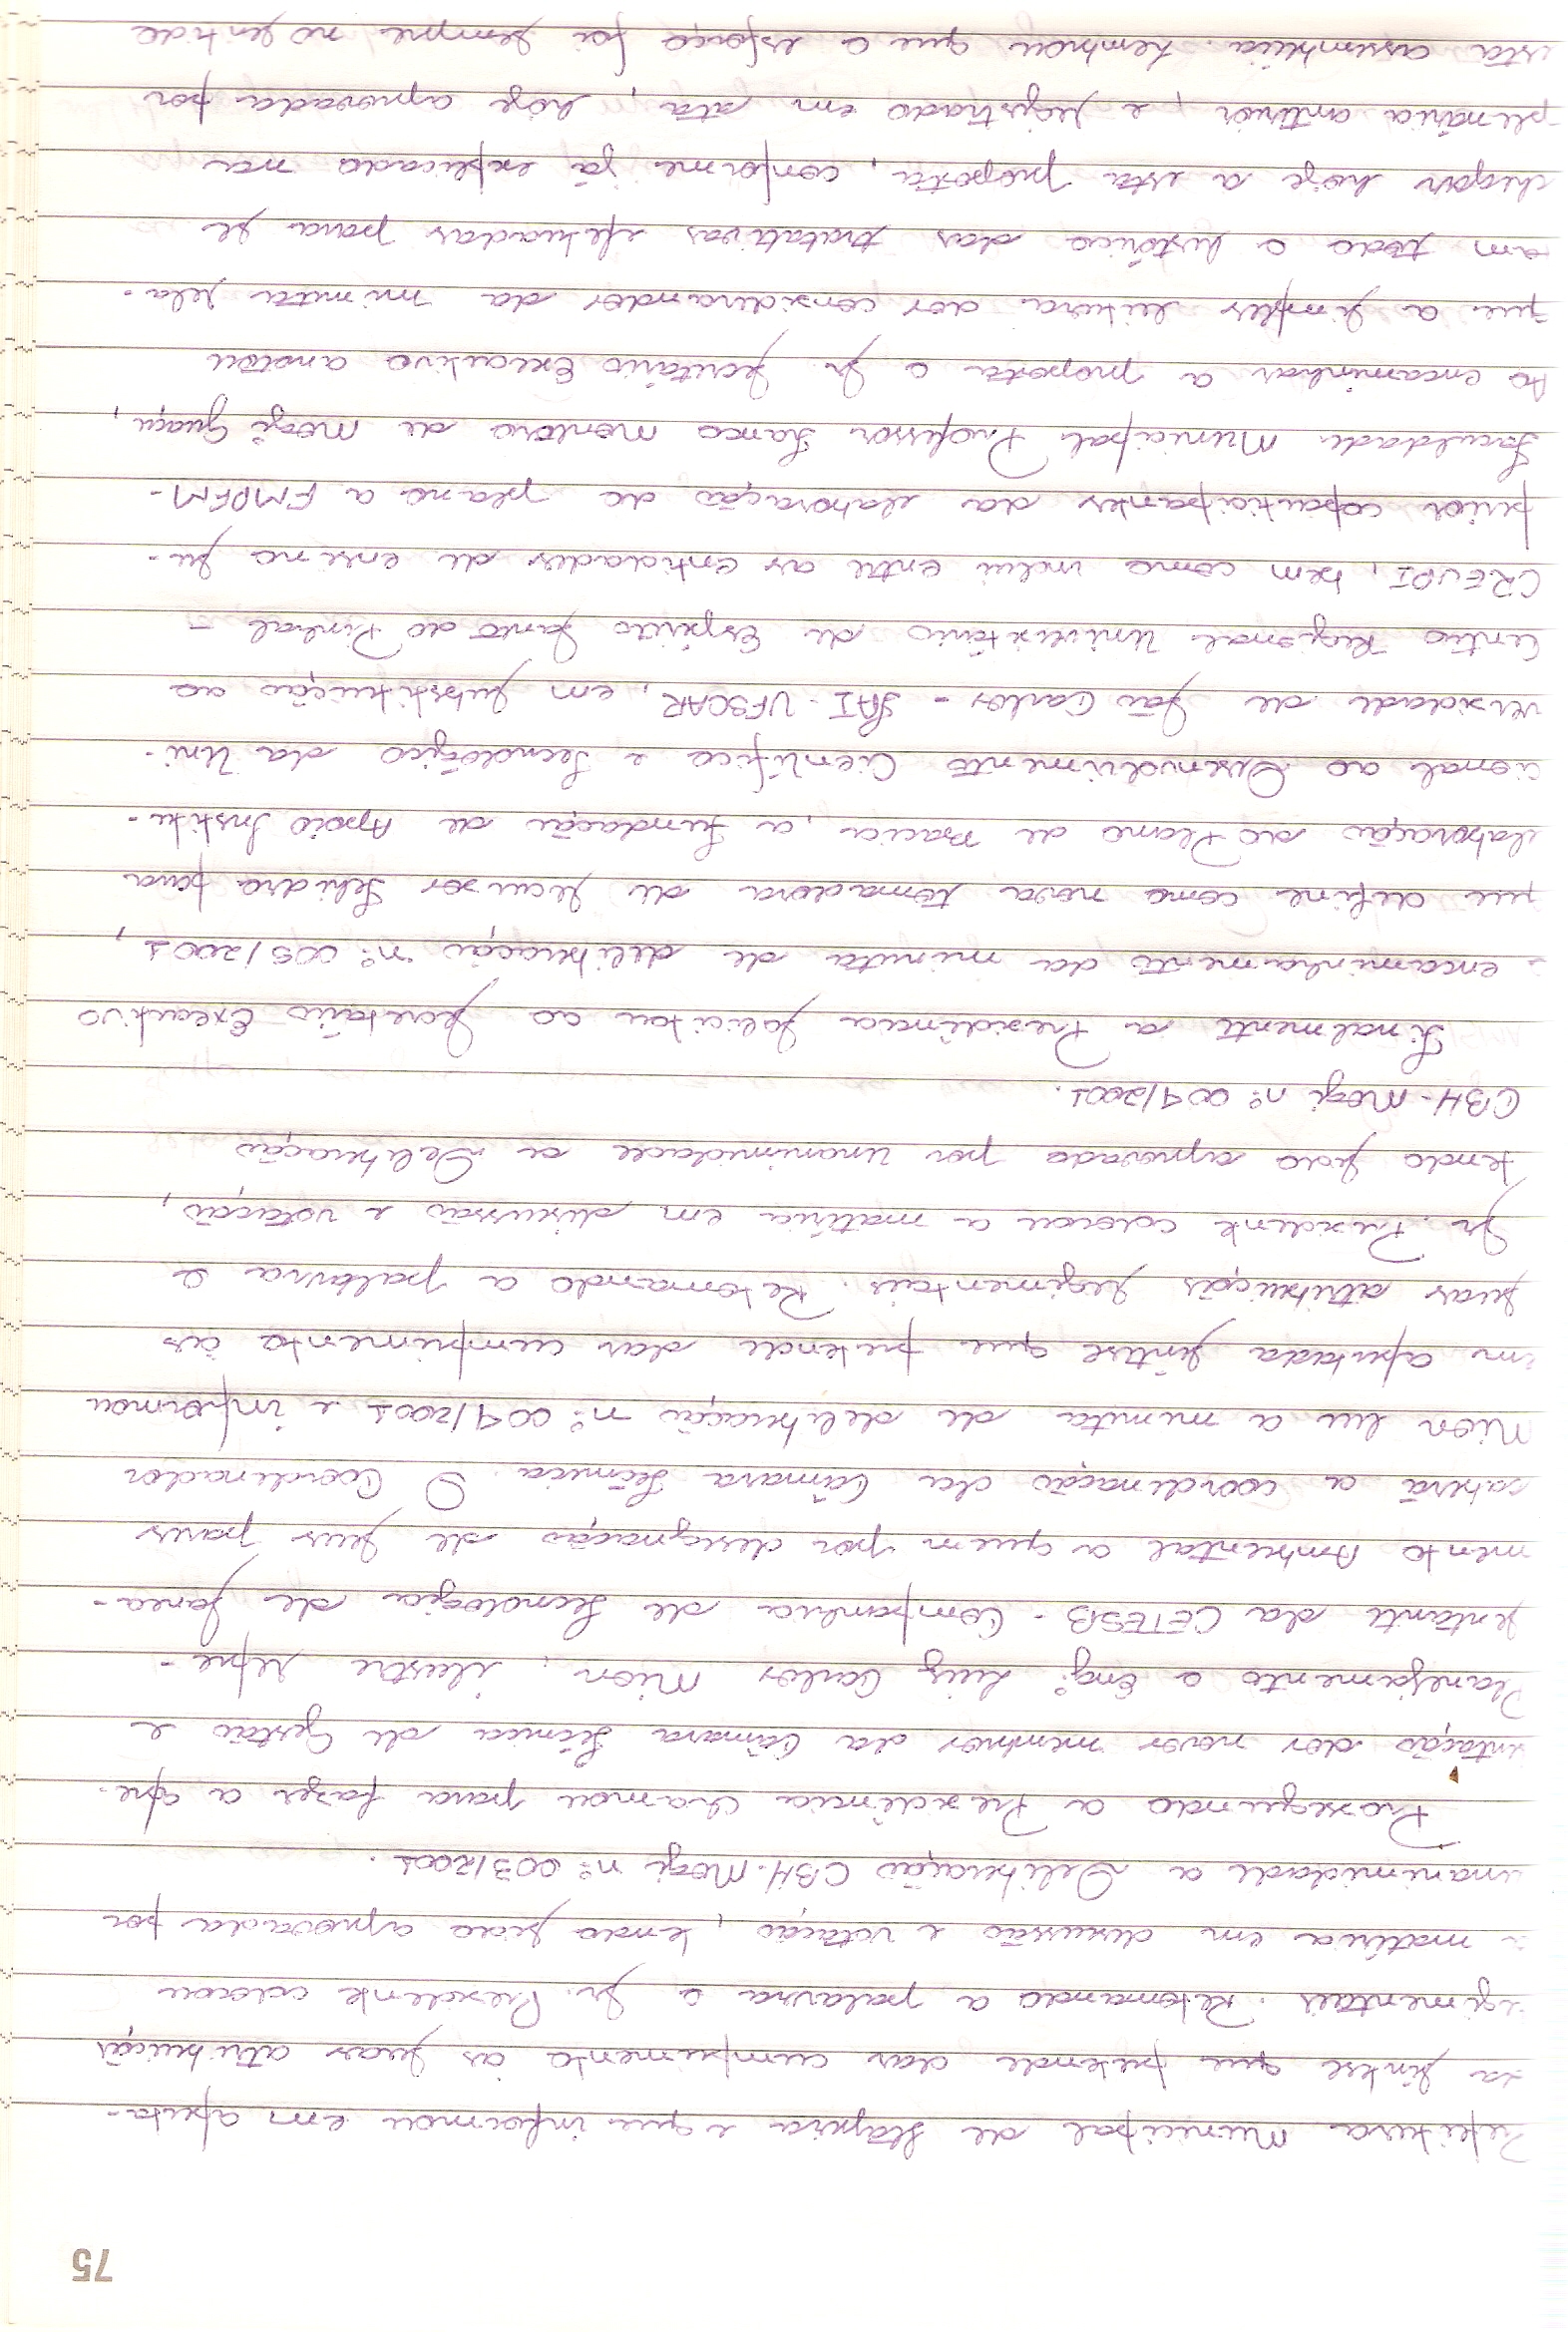 75
Prefeitura Municipal de Itapira e que informou em aperta-
da síntese que pretende dar cumprimento às suas atribuições
regimentais. Retomando a palavra o Sr. Presidente colocou
a matéria em discussão e votação, tendo sido aprovada por
unanimidade a Deliberação CBH-Mogi nº 003/2001.
Prosseguindo a Presidência chamou para fazer a apre-
sentação dos novos membros da Câmara Técnica de Gestão e
Planejamento o Engº Luiz Carlos Mion, ilustre repre-
sentante da CETESB - Companhia de Tecnologia de Sanea-
mento Ambiental a quem por designação de seus pares
caberá a coordenação da Câmara Técnica. O Coordenador
Mion leu a minuta de deliberação nº 004/2001 e informou
em apertada síntese que pretende dar cumprimento às
suas atribuições regimentais. Retomando a palavra o
Sr. Presidente colocou a matéria em discussão e votação,
tendo sido aprovado por unanimidade a Deliberação
CBH-Mogi nº 004/2001.
Finalmente a Presidência solicitou ao Secretário Executivo
o encaminhamento da minuta de deliberação nº 005/2001,
que define como nova tomadora de recursos Fehidro para
elaboração do Plano de Bacia, a Fundação de Apoio Institu-
cional ao Desenvolvimento Científico e Tecnológico da Uni-
versidade de São Carlos - FAI-UFSCAR, em substituição ao
Centro Regional Universitário de Espírito Santo do Pinhal -
CREUPI, bem como inclui entre as entidades de ensino su-
perior coparticipantes da elaboração do plano a FMPFM-
Faculdade Municipal Professor Franco Montoro de Mogi Guaçu,
Ao encaminhar a proposta o Sr Secretário Executivo anotou
que a simples leitura dos considerandos da minuta rela-
tam todo o histórico das tratativas efetuadas para se
chegar hoje a esta proposta, conforme já explicado na
plenária anterior e, registrado em ata, hoje aprovada por
esta assembléia. Lembrou que o esforço foi sempre no sentido